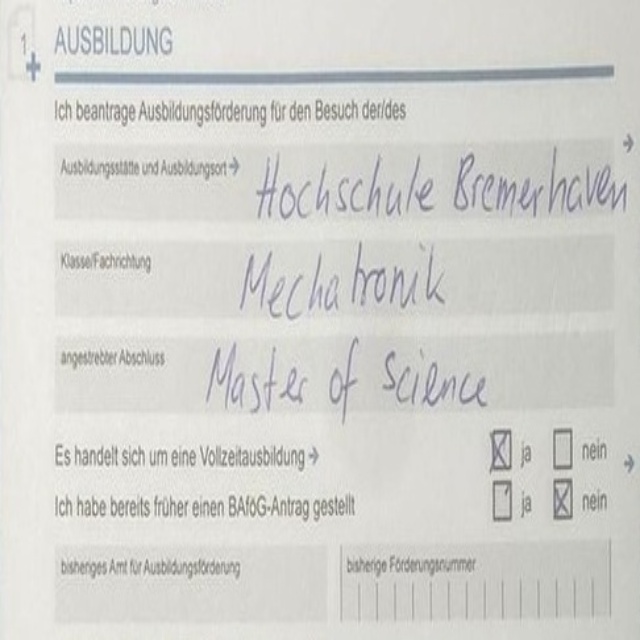 1
AUSBILDUNG
Ich beantrage Ausbildungsförderung für den Besuch der/des
Ausbildungsstätte und Ausbildungsort → Hochschule Bremerhaven
Klasse/Fachrichtung Mechatronik
angestrebter Abschluss Master of Science
Es handelt sich um eine Vollzeitausbildung → ☒ ja ☐ nein
Ich habe bereits früher einen BAföG-Antrag gestellt ☐ ja ☒ nein
bisheriges Amt für Ausbildungsförderung bisherige Förderungsnummer